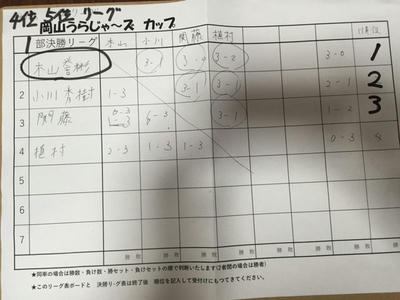 4位 5位 リーグ
岡山うらじゃ〜ズ カップ
1部決勝リーグ 木山 小川 関藤 植村 順位
木山 3- 3- 3-2 3-0 1
2 小川 秀樹 1-3 3-1 3-1 2-1 2
3 関藤 1-3 3-1 1-2 3
4 植村 2-3 1-3 1-3 0-3 4
5
6
7
勝 敗 勝 敗 勝 敗 勝 敗 勝 敗 勝 敗 勝 敗
★同率の場合は勝数・負け数・勝セット・負けセットの順で判断いたします(2者間の場合は勝者)
★このリーグ表ボードと 決勝リーグ表は終了後 順位を記入して受付けにもってきてください。